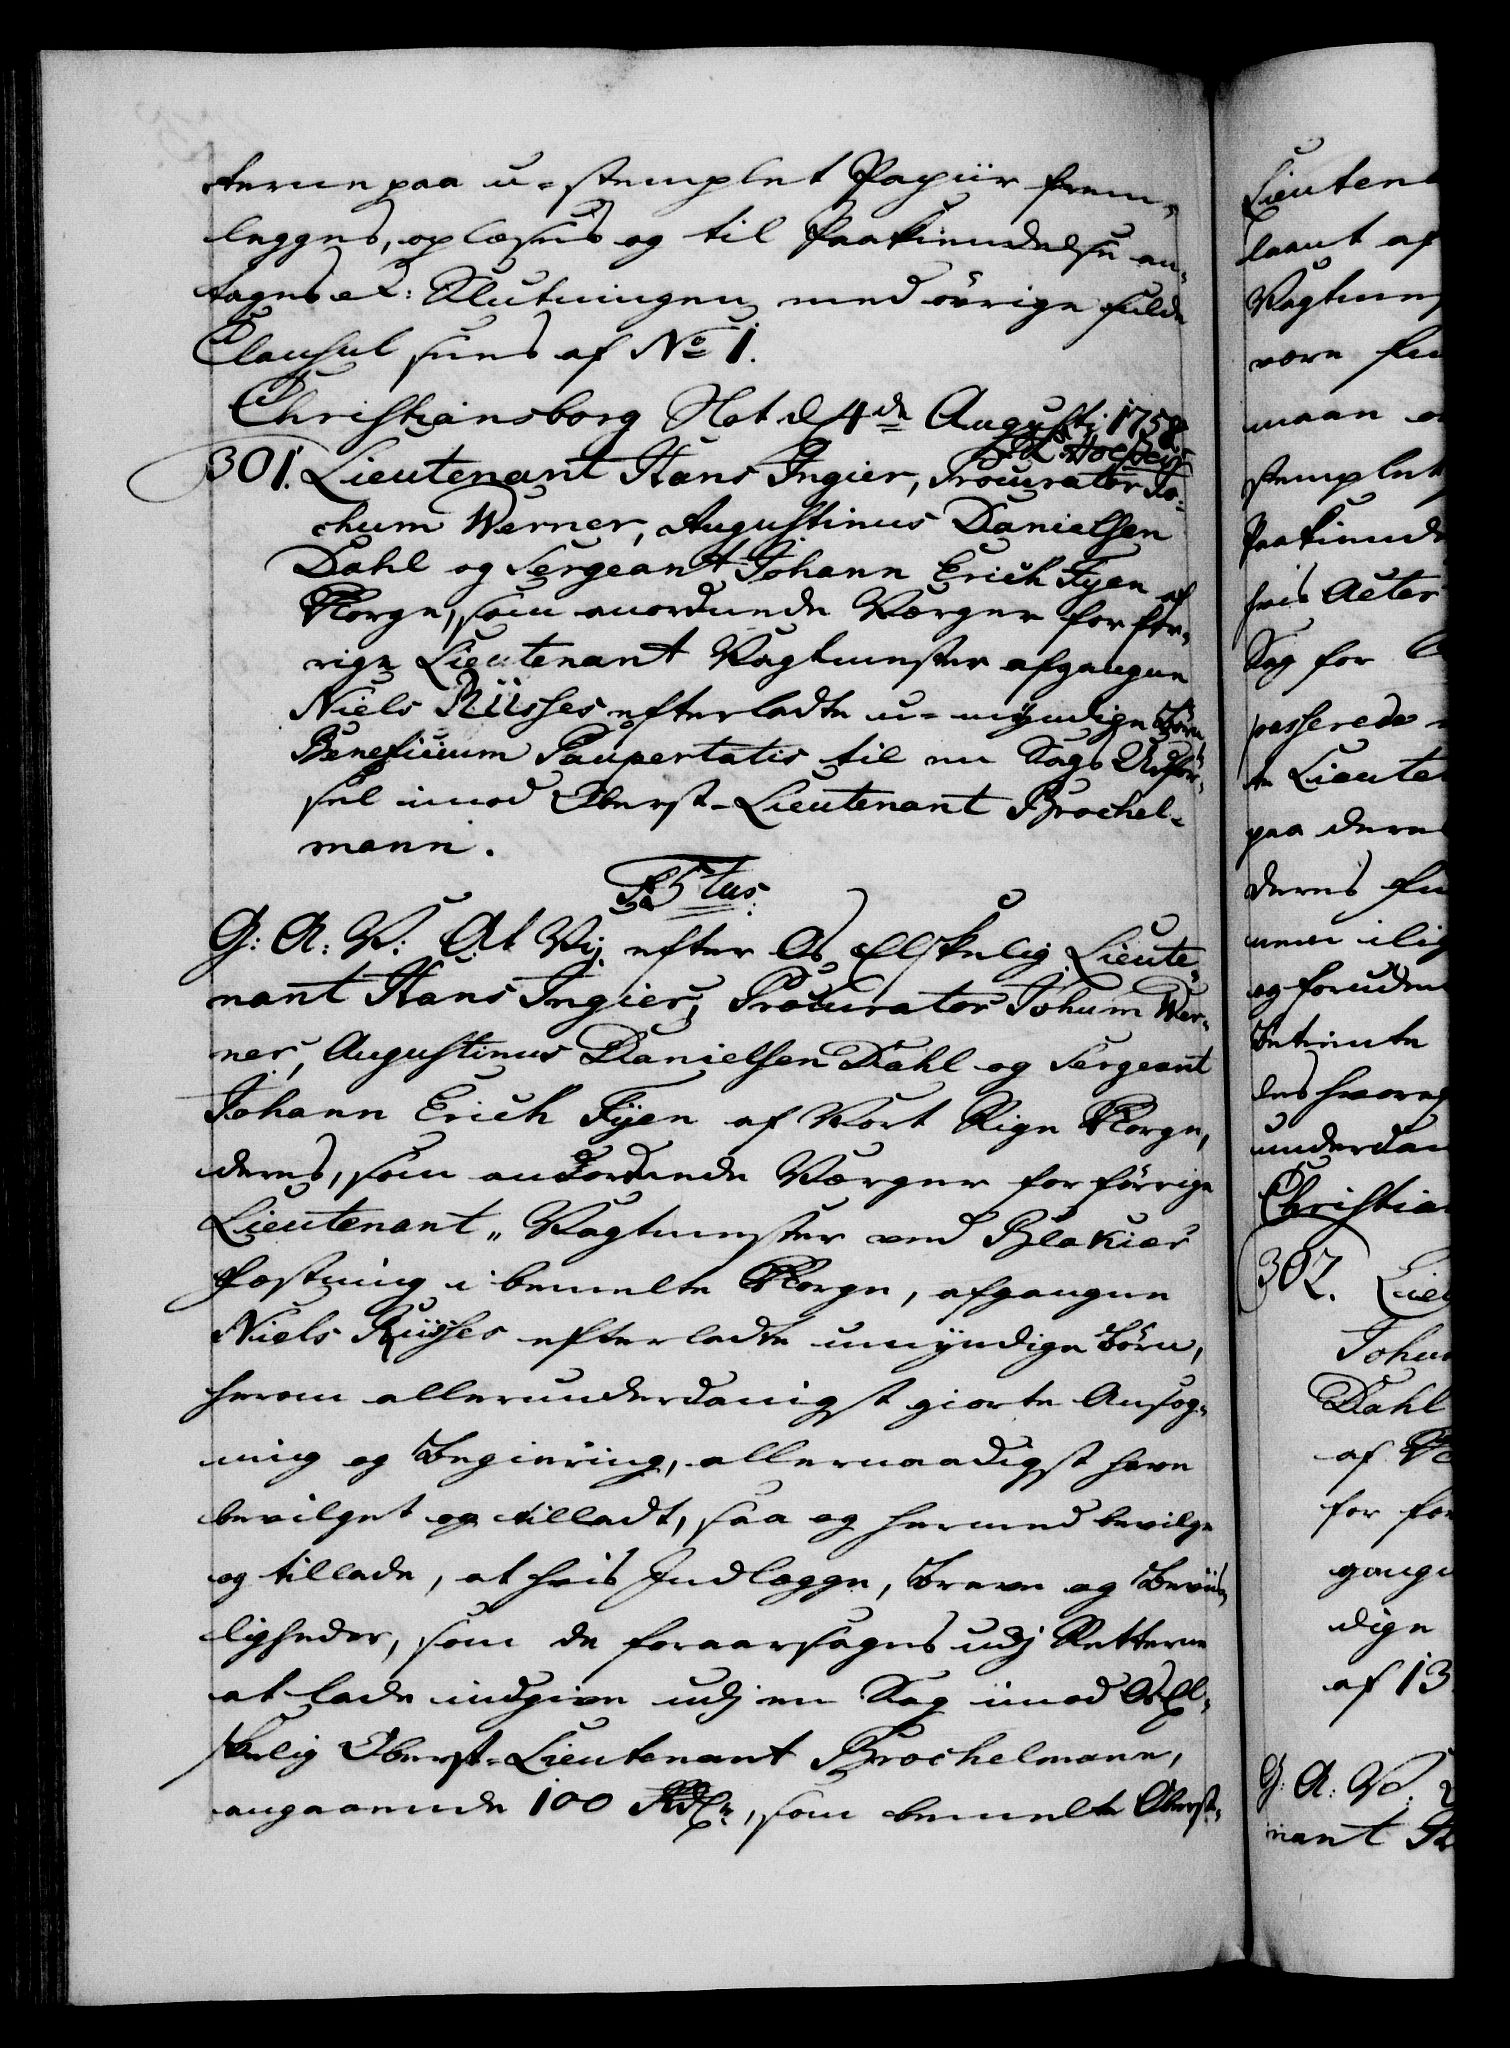 terne paa u-stemplet Papiir frem-
legges, oplæses og til Paakiendelse an-
tages etc: Slutningen med övrige fulde
Clausul sees af No 1.
Christiansborg Slot d 4de Augusti 1758
301. Lieutenant Hans Ingier, Procurator Jo-
chum Werner, Augustinus Danielsen
Dahl og Sergeant Johann Erich Fyen af
Norge, som anordnede Værger for for-
rige Lieutenant Vagtmester afgangne
Niels Riisses efterladte u-myndige Börn
Beneficium Paupertatis til en Sags Udför-
sel imod Oberst-Lieutenant Brochel-
mann.
G: A: V: At Vij efter Os Elskelig Lieute-
nant Hans Ingier, Procurator Johum Wer-
ner, Augustinus Danielsen Dahl og Sergeant
Johann Erich Fyen af Vort Rige Norge,
deres, som anordnede Værger for förrige
Lieutenant, Vagtmester ved Blakiær
Fæstning i bemelte Norge, afgangne
Niels Riisses efterladte umyndige Börn,
herom allerunderdanigst giorte Ansög-
ning og Begiering, allernaadigst have
bevilget og tilladt, saa og hermed bevilge
og tillade, at hvis Indlægge, Breve og Beviis-
ligheder, som de foraarsages udj Retterne
at lade indgive udj en Sag imod Os El-
skelig Oberst-Lieutenant Brochelmann,
angaaende 100 Rdlr, som bemelte Oberst-
Lieuten
laant af
Vagtmes
være
maan
stemplet
Paakiende
hvis Acter
Sag for
passerede
te Lieute
paa deres
deres
uden
og foruden
Betiente
des hvoraf
underdan
Christian
302. Lieu
Johu
Dahl
af No
for for
gangn
dige
af 13
G: A: V:
nant